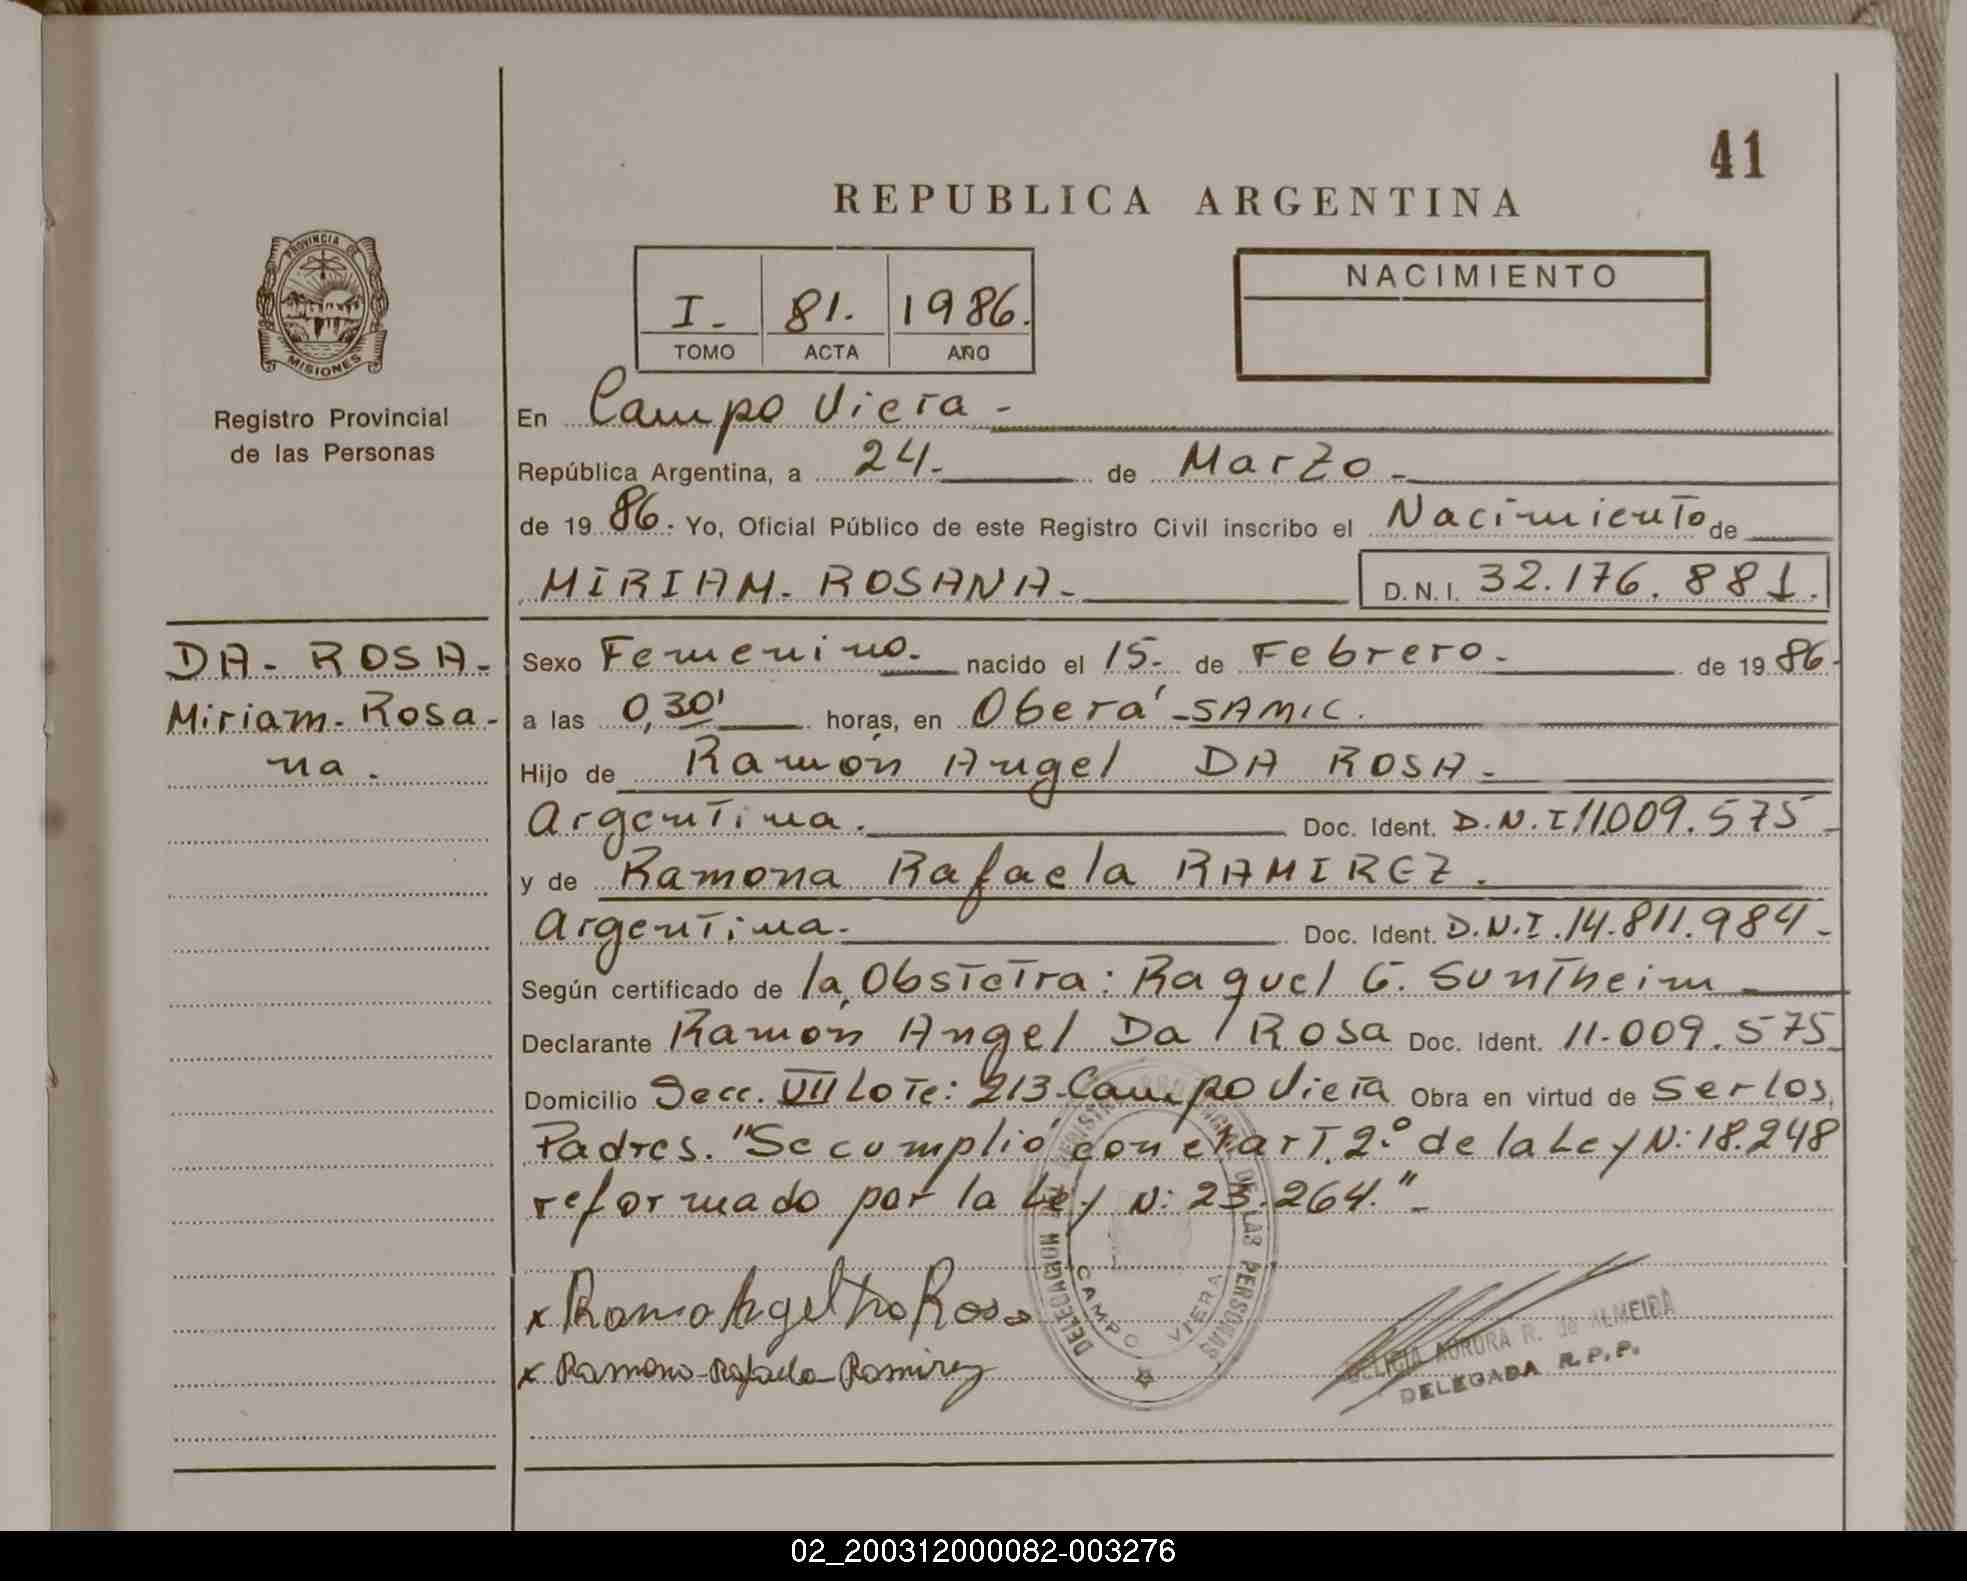 41
REPUBLICA ARGENTINA
PROVINCIA DE
MISIONES
Registro Provincial
de las Personas
I- 81. 1986.
TOMO ACTA AÑO
NACIMIENTO
En Campo Viera -
República Argentina, a 24- de Marzo -
de 1986. Yo, Oficial Público de este Registro Civil inscribo el Nacimiento de
MIRIAM- ROSANA- D.N.I. 32.176.881.
DA- ROSA-
Miriam- Rosa-
na.
Sexo Femenino- nacido el 15- de Febrero- de 1986-
a las 0,30' horas, en Oberá -SAMIC.
Hijo de Ramón Angel DA ROSA-
Argentina. Doc. Ident. D.N.I 11.009.575-
y de Ramona Rafaela RAMIREZ.
Argentina- Doc. Ident. D.N.I.14.811.984-
Según certificado de la Obstetra: Raquel G. Suntheim
Declarante Ramón Angel Da Rosa Doc. Ident. 11-009.575
Domicilio Secc. VII Lote: 213-Campo Viera Obra en virtud de Ser los
Padres. "Se cumplió con el art. 2º de la Ley N: 18.248
reformado por la Ley N: 23.264."-
DE LAS PERSONAS
DELEGACION
CAMPO VIERA
x Ramo Angel Da Rosa
x Ramona Rafaela Ramirez
DELICIA AURORA R. de ALMEIDA
DELEGADA R.P.P.
02_200312000082-003276